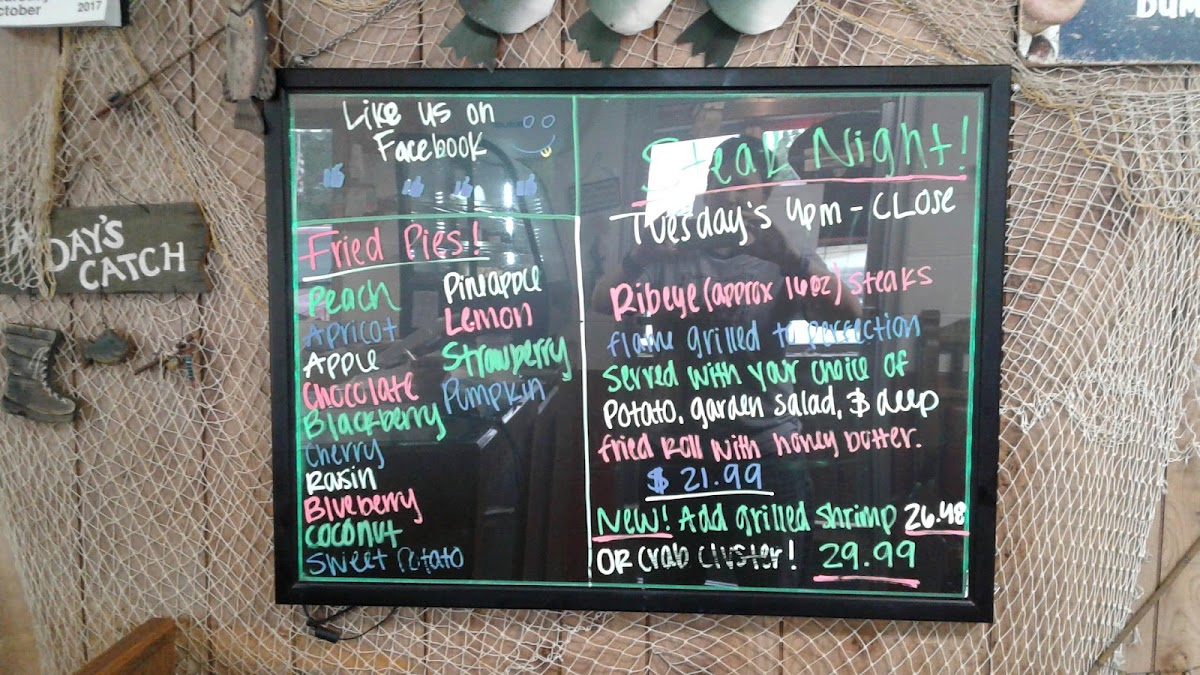 october 2017
DUM
A DAY'S
CATCH
Like us on
Facebook
Fried Pies!
Peach
Apricot
Apple
Chocolate
Blackberry
Cherry
Raisin
Blueberry
Coconut
Sweet Potato
Pineapple
Lemon
Strawberry
Pumpkin
Steak Night!
Tuesday's 4pm - CLose
Ribeye (approx 16oz) steaks
flame grilled to perfection
served with your choice of
potato, garden salad, & deep
fried roll with honey butter.
$ 21.99
New! Add grilled shrimp 26.48
OR Crab Cluster! 29.99